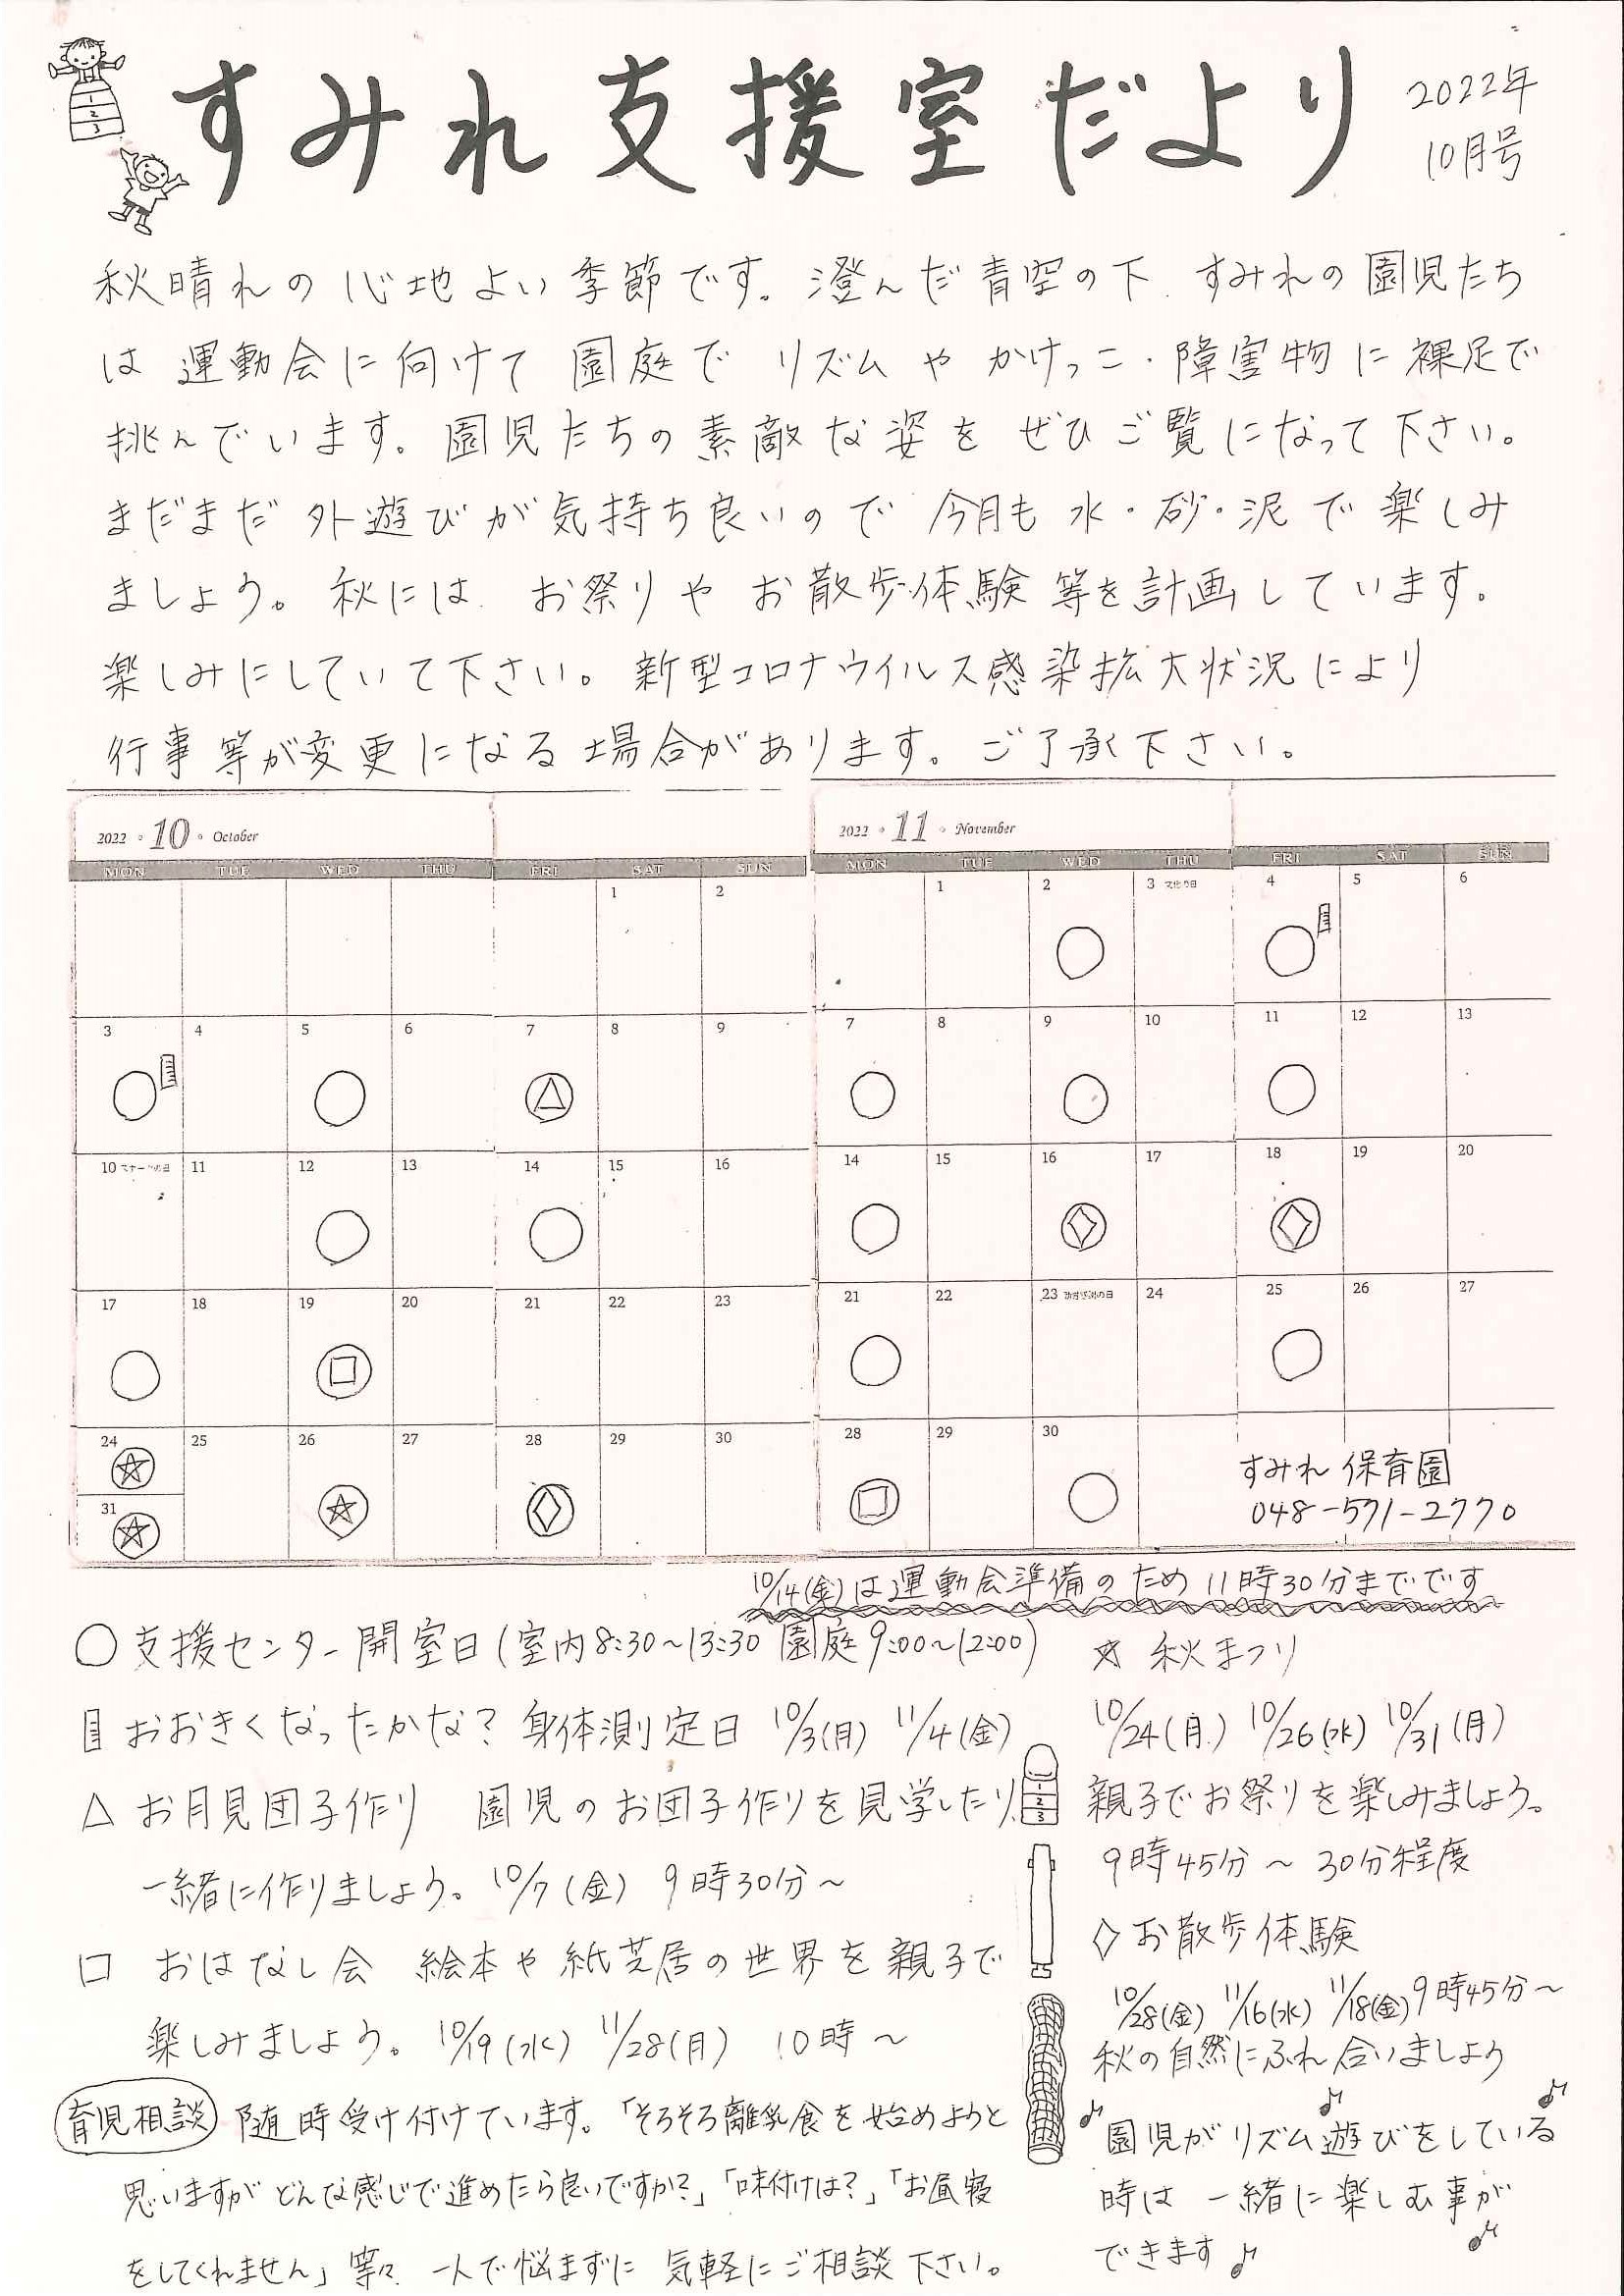 すみれ支援室だより
2022年
10月号
秋晴れの心地よい季節です。澄んだ青空の下、すみれの園児たち
は運動会に向けて園庭でリズムやかけっこ・障害物に裸足で
挑んでいます。園児たちの素敵な姿をぜひご覧になって下さい。
まだまだ外遊びが気持ち良いので今月も水・砂・泥で楽しみ
ましょう。秋には、お祭りやお散歩体験等を計画しています。
楽しみにしていて下さい。新型コロナウイルス感染拡大状況により
行事等が変更になる場合があります。ご了承下さい。
2022 ・ 10 ・ October
MON TUE WED THU FRI SAT SUN
1 2
3 4 5 6 7 8 9
○ ○ △
10 スポーツの日 11 12 13 14 15 16
○ ○
17 18 19 20 21 22 23
○ □
24 25 26 27 28 29 30
☆ ☆ ◇
31
☆
2022 ・ 11 ・ November
MON TUE WED THU FRI SAT SUN
1 2 3 文化の日 4 5 6
○ ○
7 8 9 10 11 12 13
○ ○ ○
14 15 16 17 18 19 20
○ ◇ ◇
21 22 23 勤労感謝の日 24 25 26 27
○ ○
28 29 30
□ ○
すみれ保育園
048-571-2770
10/14(金)は運動会準備のため11時30分までです
○支援センター開室日(室内8:30~13:30 園庭9:00~12:00)
おおきくなったかな?身体測定日 10/3(月) 11/4(金)
△ お月見団子作り 園児のお団子作りを見学したり
一緒に作りましょう。10/7(金) 9時30分~
□ おはなし会 絵本や紙芝居の世界を親子で
楽しみましょう。10/19(水) 11/28(月) 10時~
育児相談 随時受け付けています。「そろそろ離乳食を始めようと
思いますがどんな感じで進めたら良いですか?」「味付けは?」「お昼寝
をしてくれません」等々、一人で悩まずに気軽にご相談下さい。
☆ 秋まつり
10/24(月) 10/26(水) 10/31(月)
1
2
3
親子でお祭りを楽しみましょう。
9時45分~30分程度
◇お散歩体験
10/28(金) 11/16(水) 11/18(金)9時45分~
秋の自然にふれ合いましょう
♪園児がリズム遊びをしている
時は一緒に楽しむ事が
できます♪